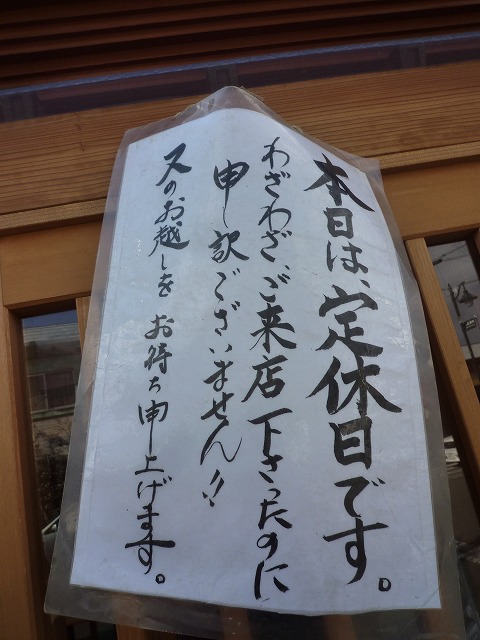 本日は、定休日です。
わざわざ、ご来店下さったのに
申し訳ございません!!
又のお越しを お待ち申し上げます。